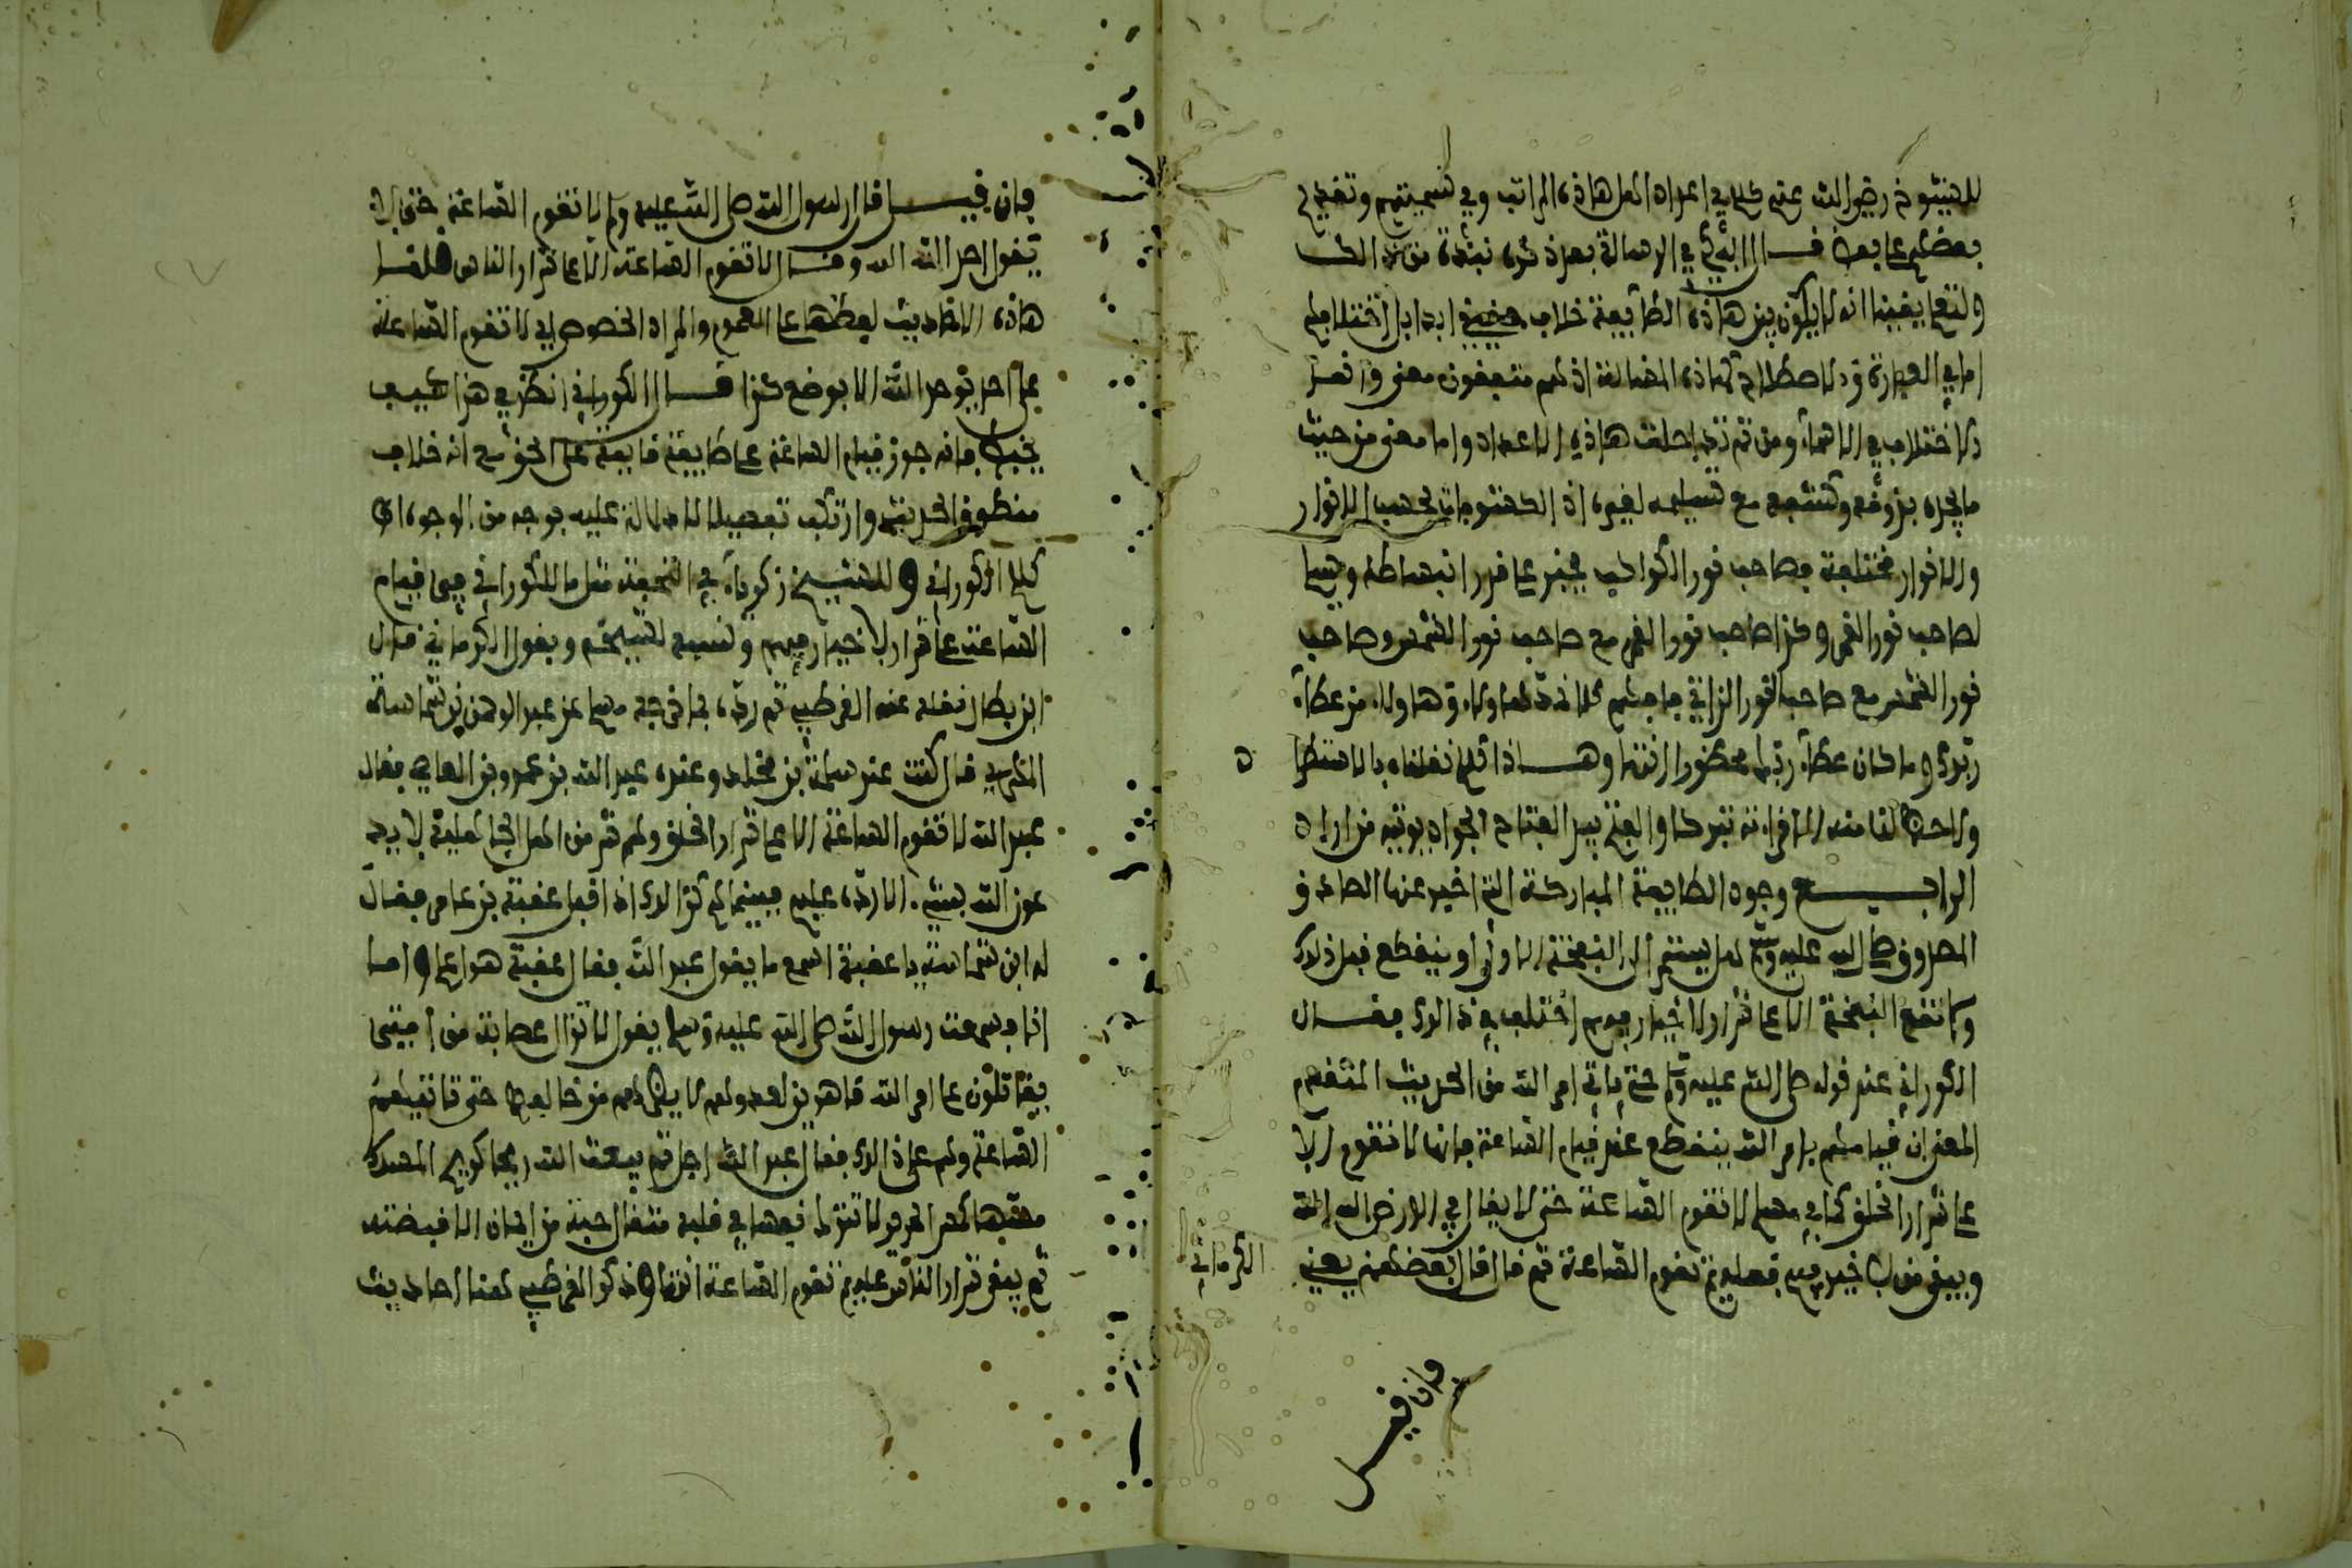 للشيوخ رضي الله عنهم كلام في اعداد اهل هاذه المراتب وفي تسميتهم وتفضيل
بعضهم على بعض قال في الرسالة بعد ذكره نبذة من ذالك
ولتعلم يقينا انه لا يكون بين هاذه الطايفة خلاف ابدا بل اختلافهم
اما في العبارة و الاصطلاح كهاذه المخالفة اذ هم متفقون معنى وانما
الاختلاف في الاسماء ومن ثم هاذه الاعداد واما معنى من حيث
ما يجده بذوقه وكشفه مع تسليمه لغيره اذ الكشوفات بحسب الانوار
والانوار مختلفة فصاحب نور الكواكب يخبر على قدر انبساطه
لصاحب نور القمر وكذا صاحب نور القمر مع صاحب نور الشمس وصاحب
نور الشمس مع صاحب النور الذاتي فافهم كلا نمد هاولاء وهاولاء من عطاء
ربك وما كان عطاء ربك محظورا انتهى وهاذا نقلناه بالاستطراد
ولاحت لنا منه افراده تبركا والله بيد الفتاح الجواد يوتيه من اراد
الرابع وجود الطايفة المباركة التي اخبر عنها الصادق
المصدوق صلى الله عليه وسلم هل يستمر الى النفخة الاولى او ينقطع قبل ذلك
ولا تقع النفخة الا على شرار لا خيار فيهم اختلف في ذالك فقال
الكوراني عند قوله صلى الله عليه وسلم حتى ياتي امر الله من الحديث المتقدم
المعنى ان قيامهم بامر الله ينقطع عند قيام الساعة فانها لا تقوم الا
على شرار الخلق كما في مسلم لا تقوم الساعة حتى لا يقال في الارض الله الله
ويبقى من لا خير فيهم فعليهم تقوم الساعة ثم قال قال بعضهم يعني
الكرماني
فان قيل
فان قيل قال رسول الله صلى الله عليه وسلم لا تقوم الساعة حتى لا
يقول احد الله الله وقال لا تقوم الساعة الا على شرار الناس قلنا
هاذه الاحاديث لفظها على العموم والمراد الخصوص اي لا تقوم الساعة
على احد يوحد الله الا بموضع كذا قال الكوراني انظر في هذا كيف
يخبط فانه جوز قيام الساعة على طايفة قايمة على الحق مع انه خلاف
منطوق الحديث وارتكب تفصيلا لا دلالة عليه بوجه من الوجوه انتهى
كلام الكوراني و للشيخ زكرياء في التحفة مثل ما للكوراني في قيام
الساعة على شرار لا خيار فيهم ونسبه لشيخه ويقول الكرماني قال
ابن بطال نقله عنه القرطبي ثم رده بما خرجه مسلم عن عبد الرحمن بن شماسة
المهري قال كنت عند مسلمة بن مخلد وعنده عبد الله بن عمرو بن العاصي فقال
عبد الله لا تقوم الساعة الا على شرار الخلق وهم شر من اهل الجاهلية لا يدعون
الله بشيء الا رده عليهم فبينما هم كذالك اذ اقبل عقبة بن عامر فقال
له ابن شماسة يا عقبة اسمع ما يقول عبد الله فقال عقبة هو اعلم واما
انا فسمعت رسول الله صلى الله عليه وسلم يقول لا تزال عصابة من امتي
يقاتلون على امر الله قاهرين لعدوهم لا يضرهم من خالفهم حتى تاتيهم
الساعة وهم على ذالك فقال عبد الله اجل ثم يبعث الله ريحا كريح المسك
مسها كمس الحرير لا تترك نفسا في قلبه مثقال حبة من ايمان الا قبضته
ثم يبقى شرار الناس عليهم تقوم الساعة انتهى وذكر القرطبي هنا احاديث